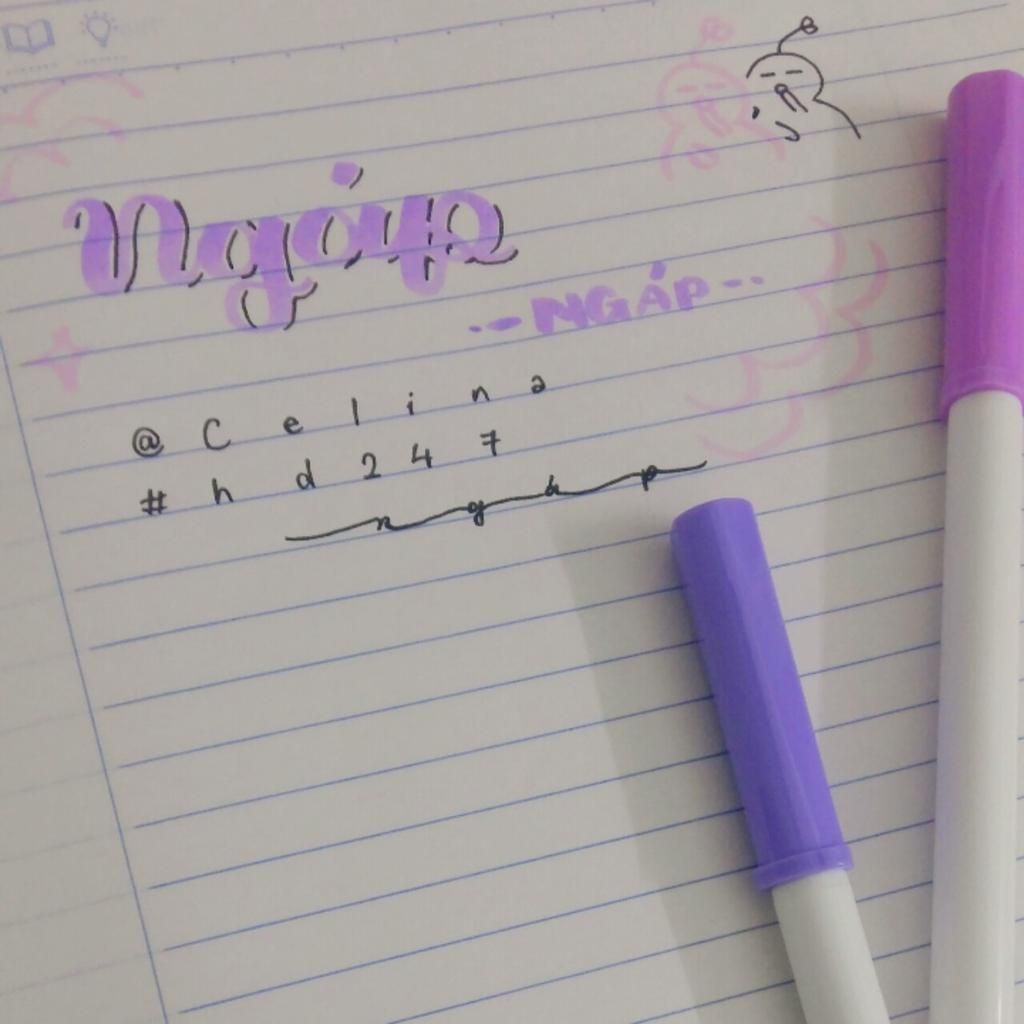 Ngáp
-- NGÁP --
@Celina
#hd247
ngáp